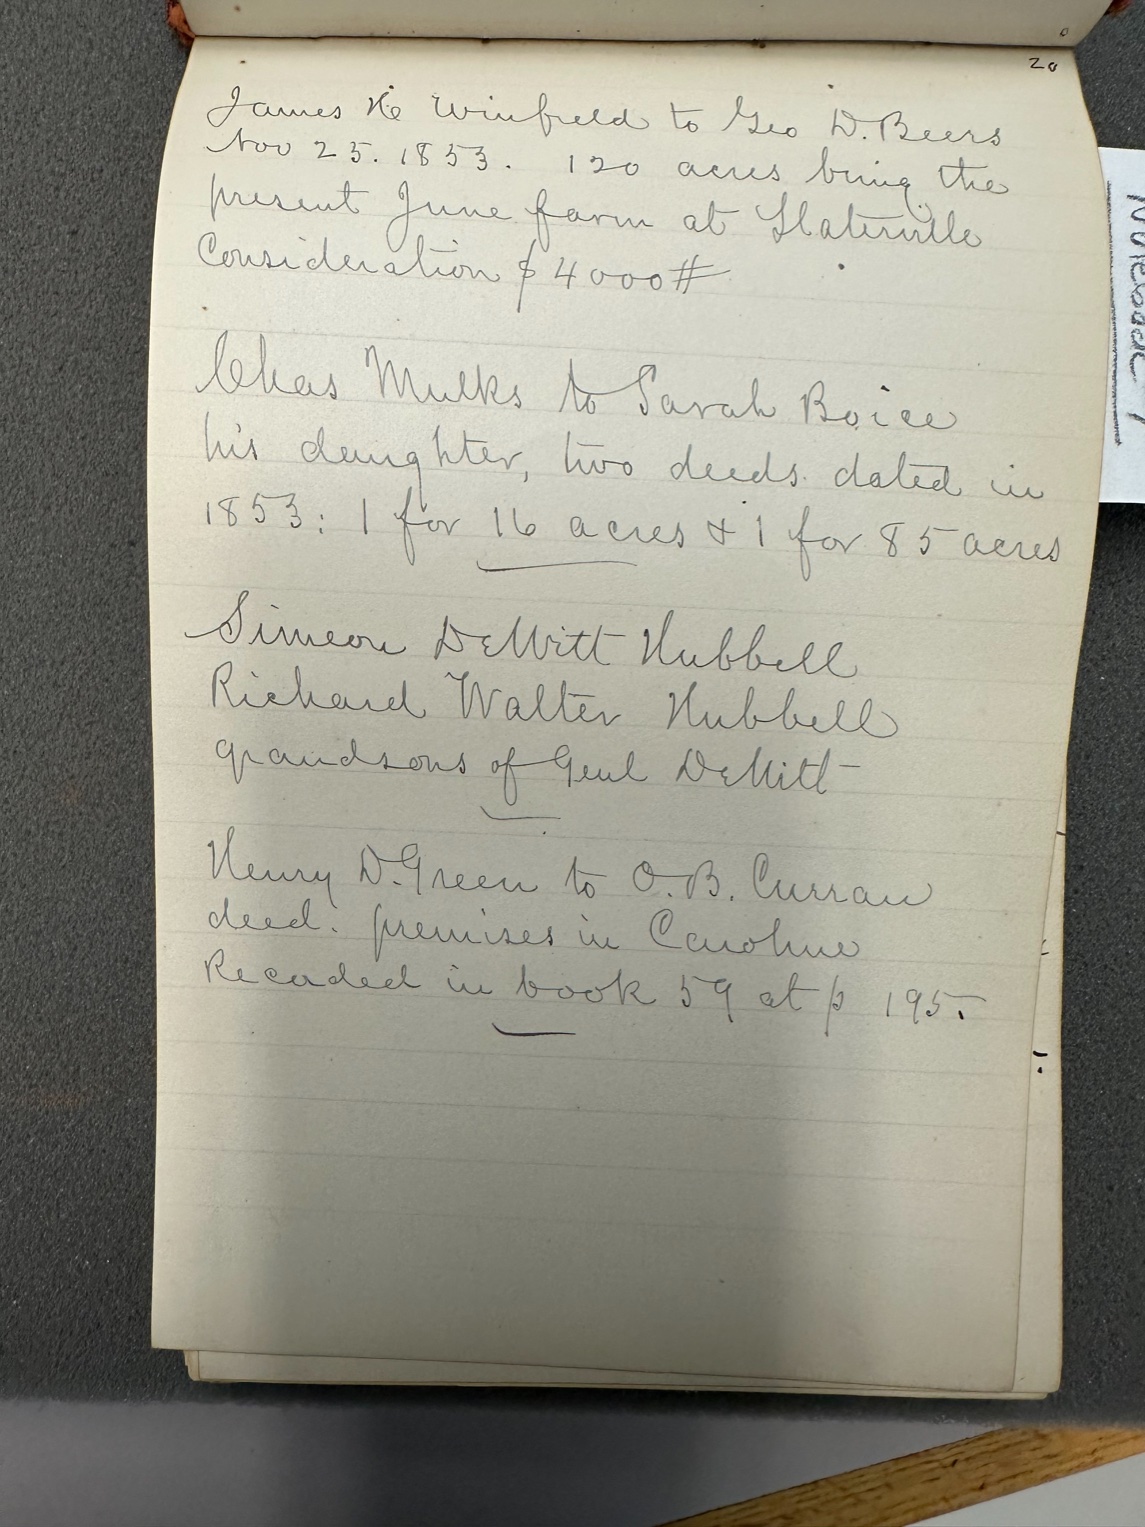 20
James H Winfield to Geo D. Beers
Nov 25. 1853. 120 acres being the
present June farm at Slaterville
Consideration $4000#
Chas Mulks to Sarah Boice
his daughter, two deeds dated in
1853: 1 for 16 acres & 1 for 85 acres
Simeon DeWitt Hubbell
Richard Walter Hubbell
grandsons of Genl DeWitt
Henry D. Green to O. B. Curran
deed. premises in Caroline
Recorded in book 59 at p 195.
Notebook 1